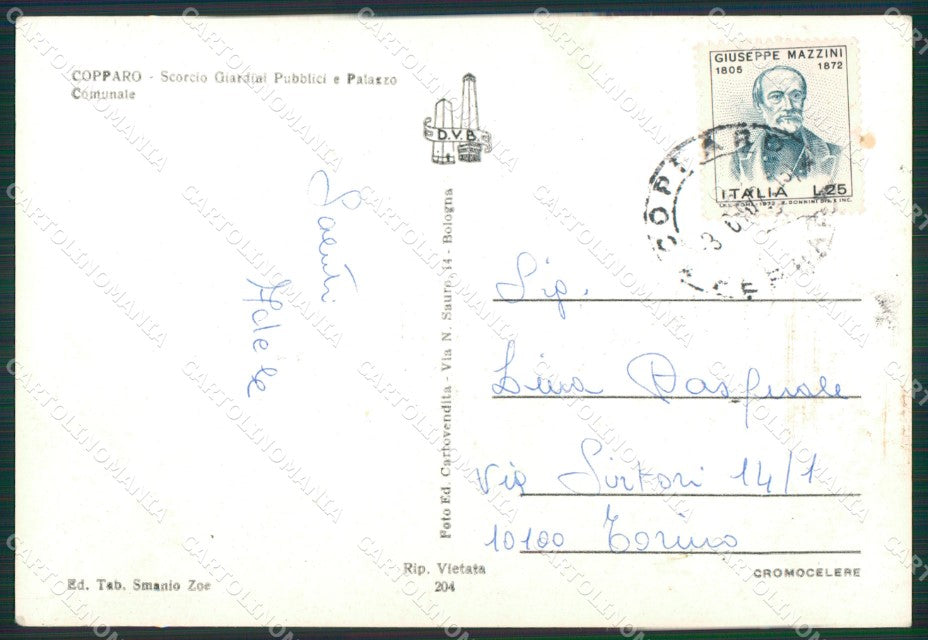 COPPARO - Scorcio Giardini Pubblici e Palazzo
Comunale
D.V.B.
GIUSEPPE MAZZINI
1805 1872
ITALIA L.25
COPPARO
Saluti
Adele
Foto Ed. Cartovendita - Via N. Sauro, 14 - Bologna
Sig.
Lina Pasquale
via Sirtori 14/1
10100 Torino
Rip. Vietata
204
Ed. Tab. Smanio Zoe
CROMOCELERE
CARTOLINOMANIA